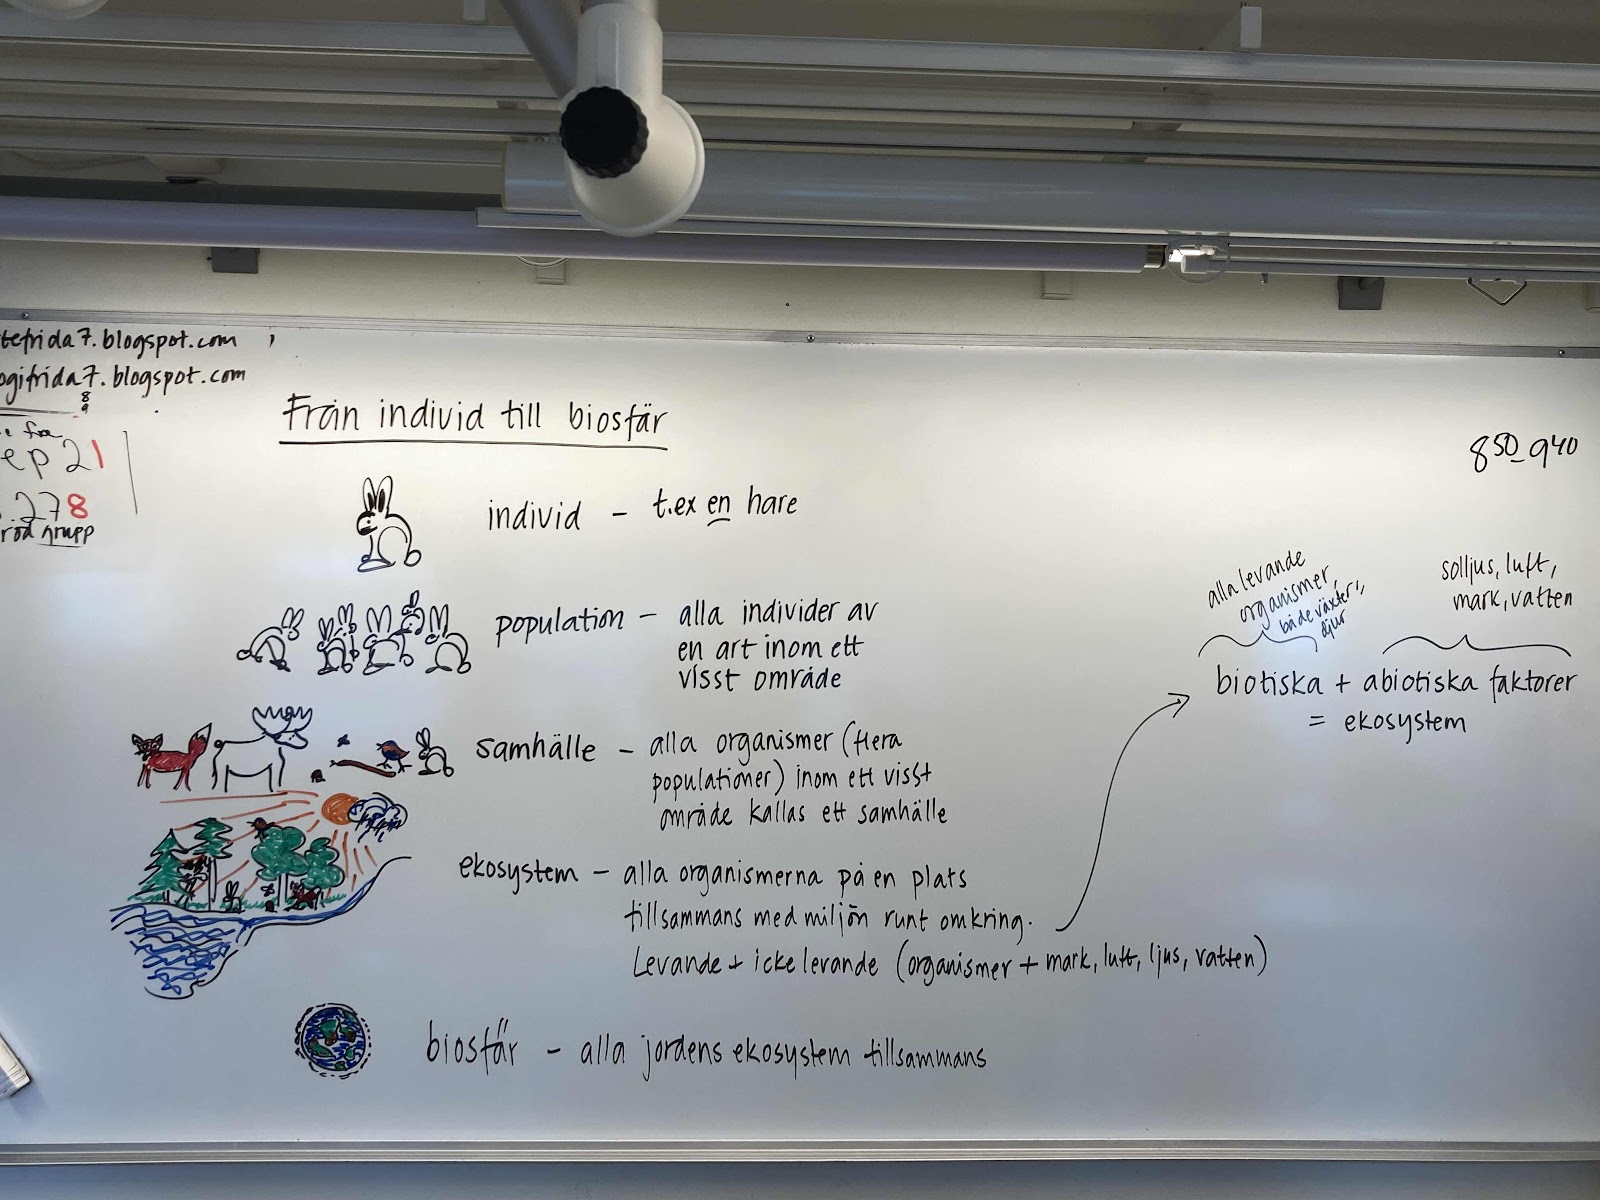 tefrida7.blogspot.com
ogifrida7.blogspot.com
8
9
ep 21
278
röd grupp
Från individ till biosfär
8⁵⁰-9⁴⁰
individ - t.ex en hare
population - alla individer av
en art inom ett
visst område
samhälle - alla organismer (flera
populationer) inom ett visst
område kallas ett samhälle
ekosystem - alla organismerna på en plats
tillsammans med miljön runt omkring.
Levande + icke levande (organismer + mark, luft, ljus, vatten)
biosfär - alla jordens ekosystem tillsammans
alla levande
organismer,
både växter,
djur
solljus, luft,
mark, vatten
biotiska + abiotiska faktorer
= ekosystem